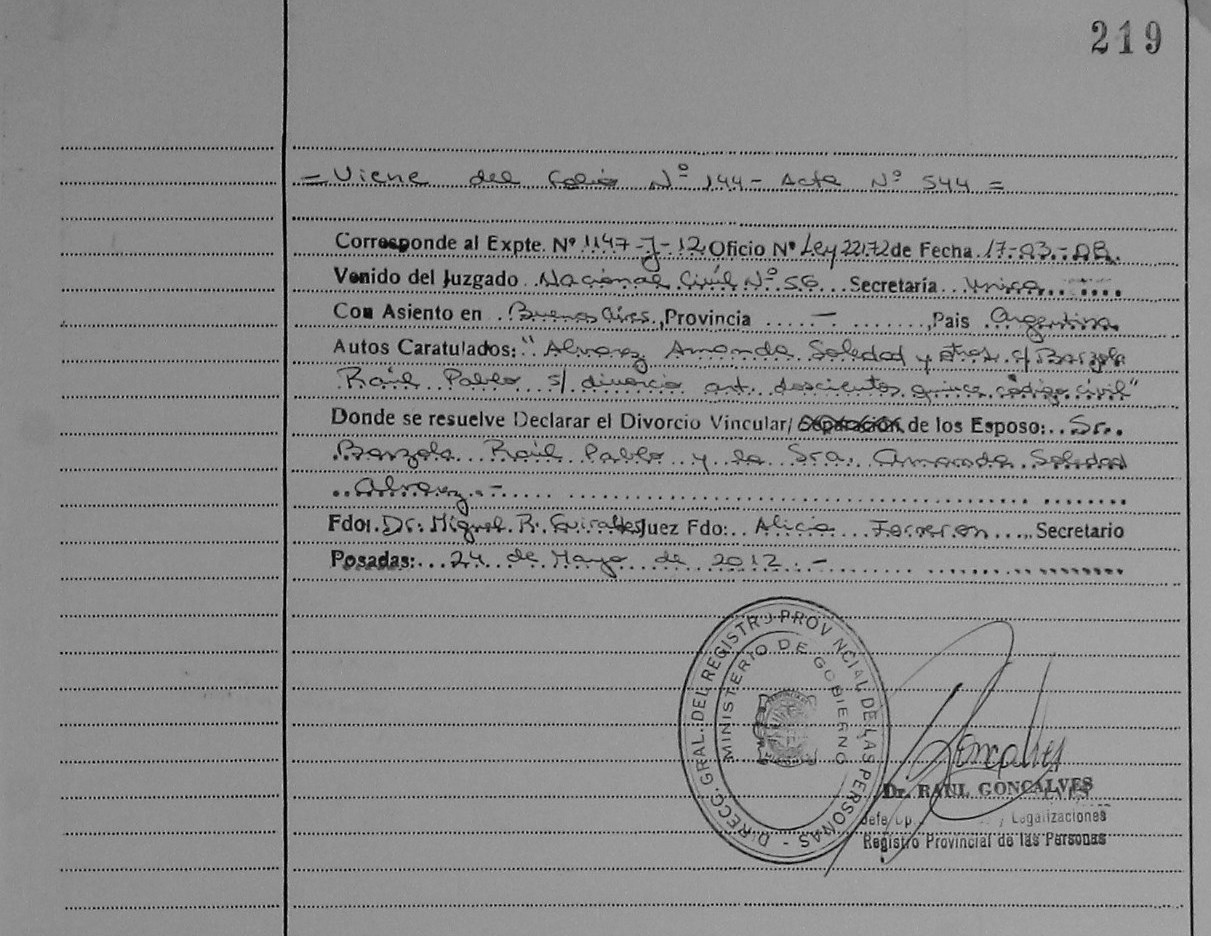 219
= Viene del folio Nº 144 - Acta Nº 544 =
Corresponde al Expte. Nº 1147-J-12 Oficio Nº Ley 22172 de Fecha 17-03-08.
Venido del Juzgado Nacional Civil Nº 56 Secretaría Unica
Con Asiento en Buenos Aires, Provincia - , País Argentina
Autos Caratulados: "Alvarez Amanda Soledad y otros c/ Barzola
Raúl Pablo s/ divorcio art. doscientos quince código civil"
Donde se resuelve Declarar el Divorcio Vincular/ de los Esposo: Sr.
Barzola Raúl Pablo y la Sra. Amanda Soledad
Alvarez.-
Fdo: Dr. Miguel R. Juez Fdo: Alicia Secretario
Posadas: 24 de Mayo de 2012 -
DIRECC. GRAL. DEL REGISTRO PROVINCIAL DE LAS PERSONAS -
MINISTERIO DE GOBIERNO
Goncalves
Dr. RAUL GONCALVES
Jefe Dp. Legalizaciones
Registro Provincial de las Personas